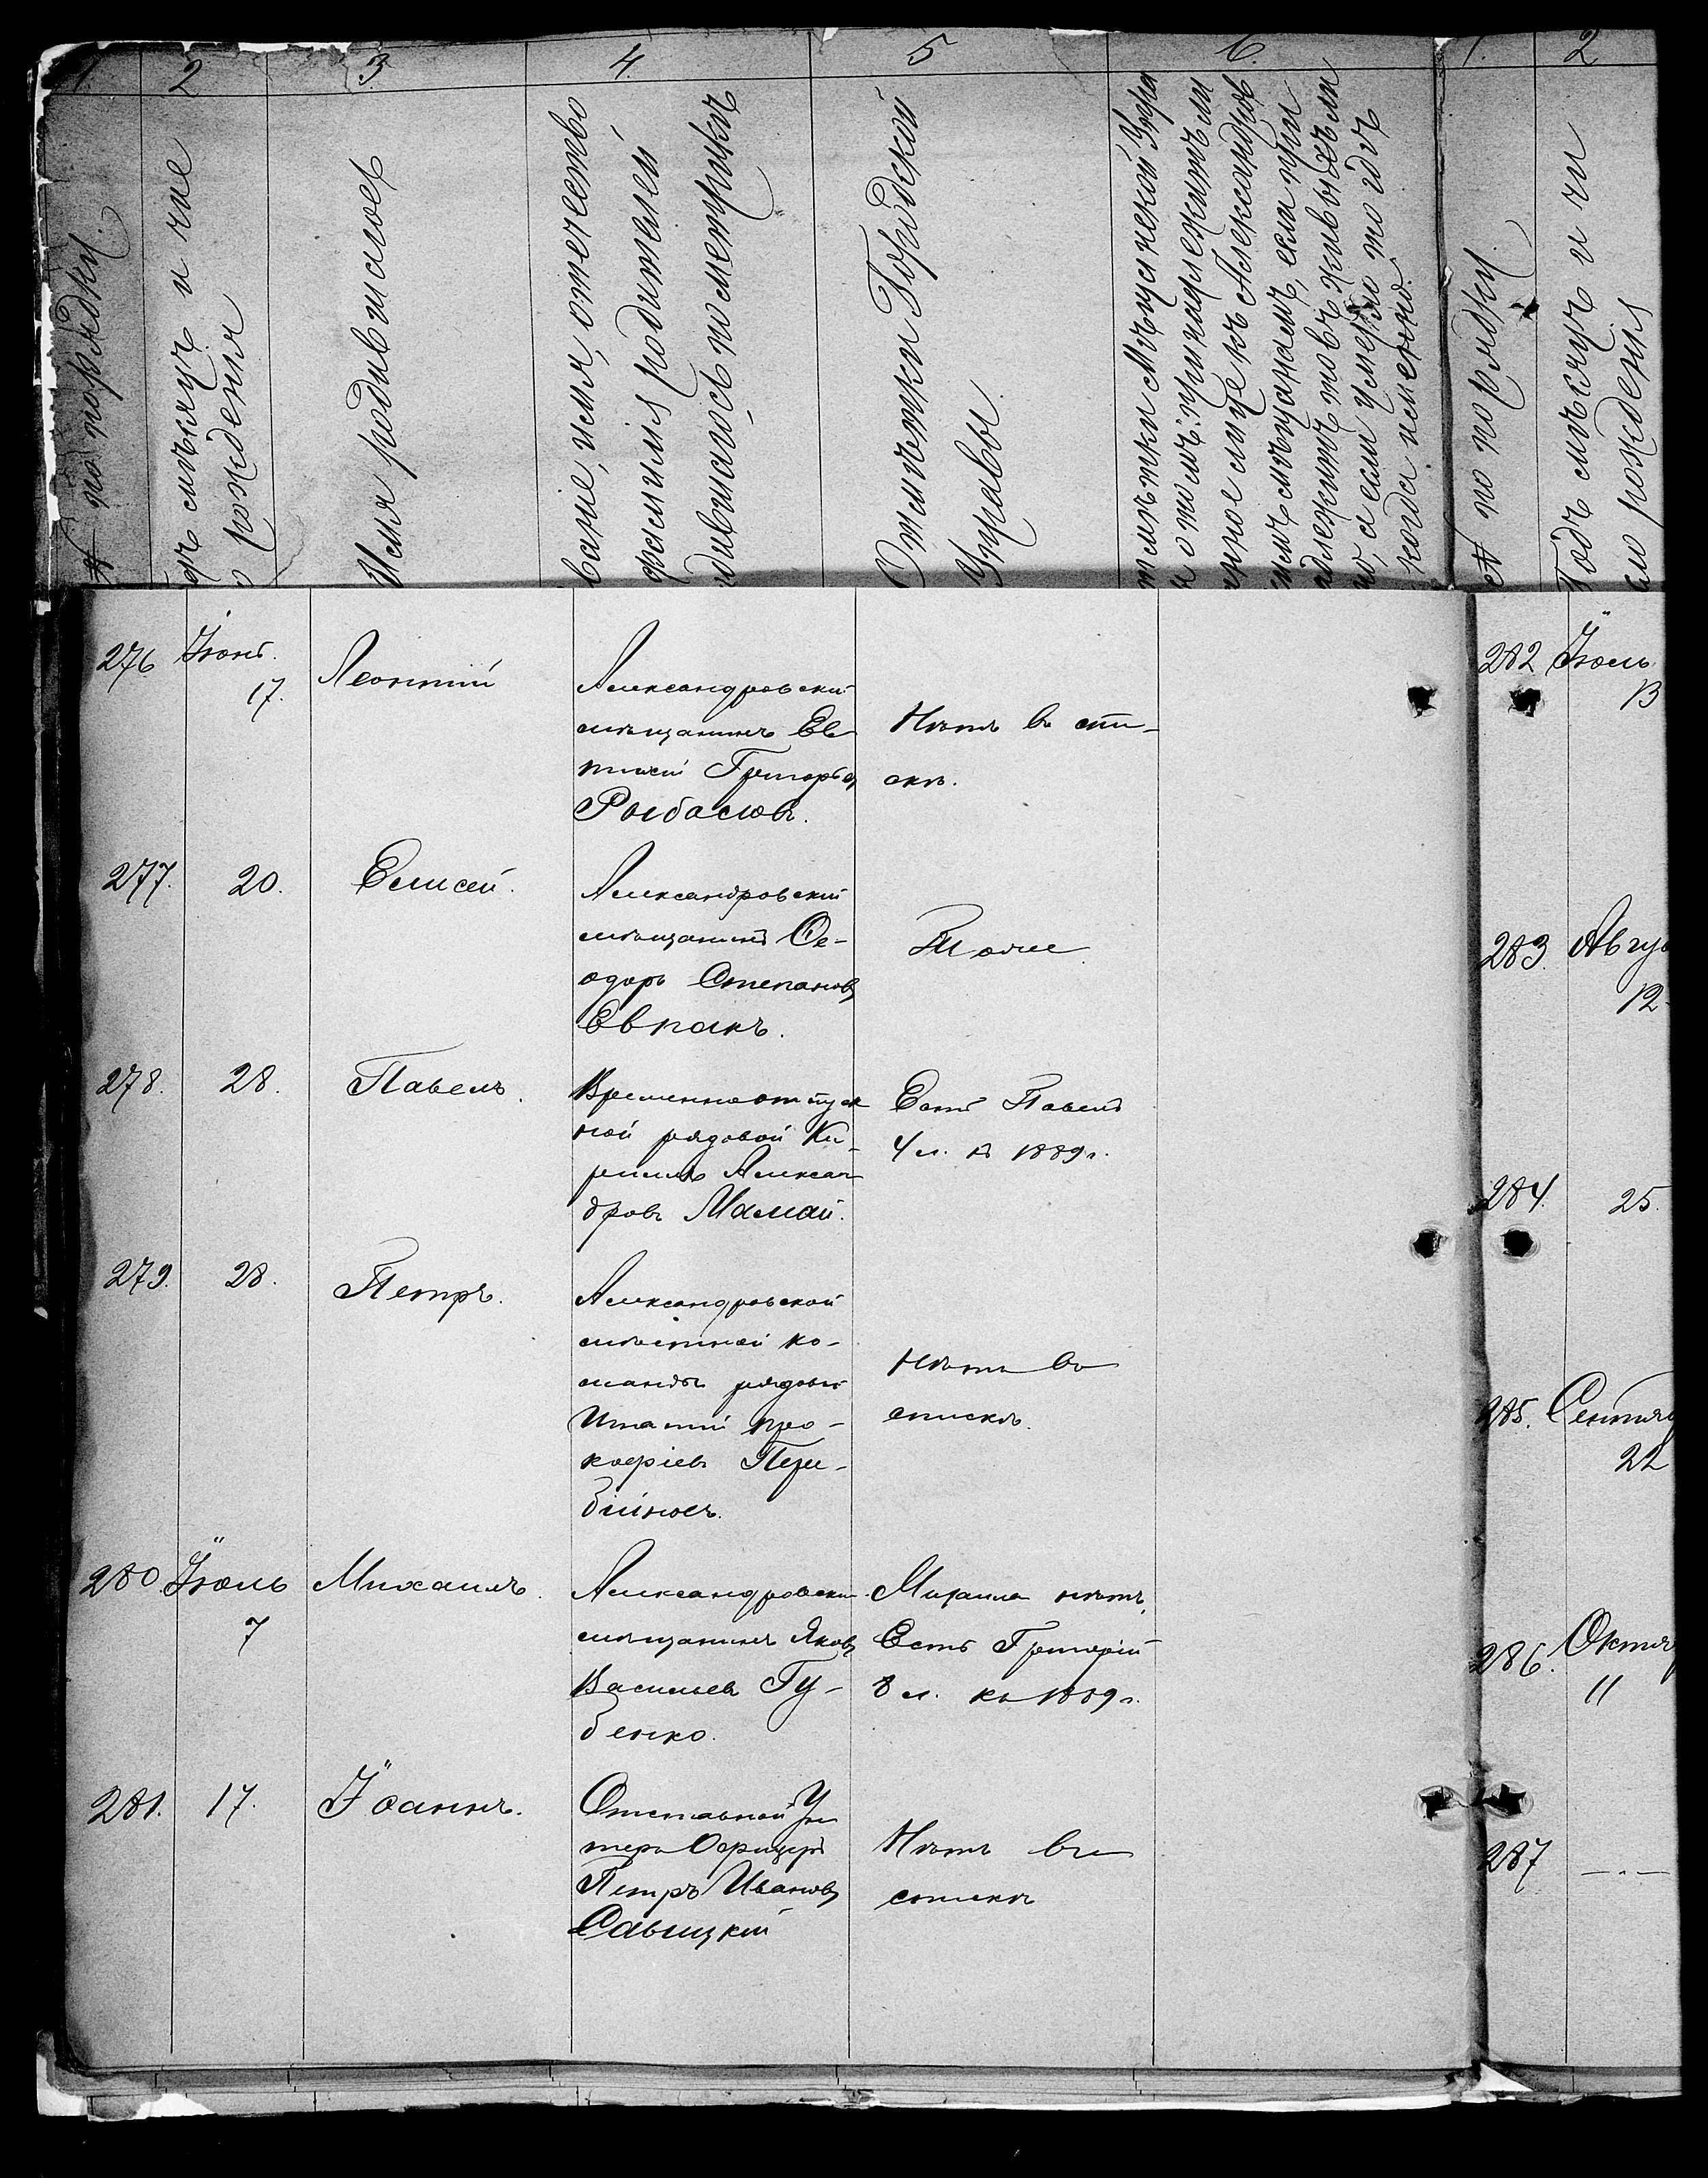 1. 2 3. 4. 5 6. 1. 2
№ по порядку.
мѣсяцъ и чис
рожденія
Имя родившагося
званіе, имя, отечество
фамилія родителей
родившагося по метрикѣ
Отмѣтки Городской
Управы.
Отмѣтки Мѣщанской Упра
о томъ: принадлежитъ ли
лице къ Александров
мѣщанамъ, если при
надлежитъ то въ живыхъ ли
но, а если умерло то годъ
когда исключено.
№ по порядку
Годъ мѣсяцъ и чи
сло рожденія
276 Іюнь.
17.
Леонтій
Александровскій
мѣщанинъ Ев-
тихій Григорьев
Рыбаловъ.
Нѣтъ въ спи-
скѣ.
277. 20. Елисей.
Александровскій
мѣщанинъ Ѳе-
одоръ Степановъ
Евпакъ.
Тоже.
278. 28. Павелъ.
Временноотпуск
ной рядовой Ки-
риллъ Алексан-
дровъ Мамай.
Есть Павелъ
4 л. къ 1889 г.
279. 28. Петръ.
Александровской
мѣстной ко-
манды рядовой
Ипатій Про-
кофіевъ Пере-
бійносъ.
Нѣтъ въ
спискѣ.
280 Іюль
7
Михаилъ.
Александровскій
мѣщанинъ Яковъ
Васильевъ Гу-
бенко.
Михаила нѣтъ,
Есть Григорій
8 л. къ 1889 г.
281. 17. Іоаннъ.
Отставной Ун
теръ Офицеръ
Петръ Ивановъ
Савицкій
Нѣтъ въ
спискѣ
282 Іюль
13
283. Авгус
12
284. 25.
285. Сентяб
22
286. Октяб
11
287 — " —